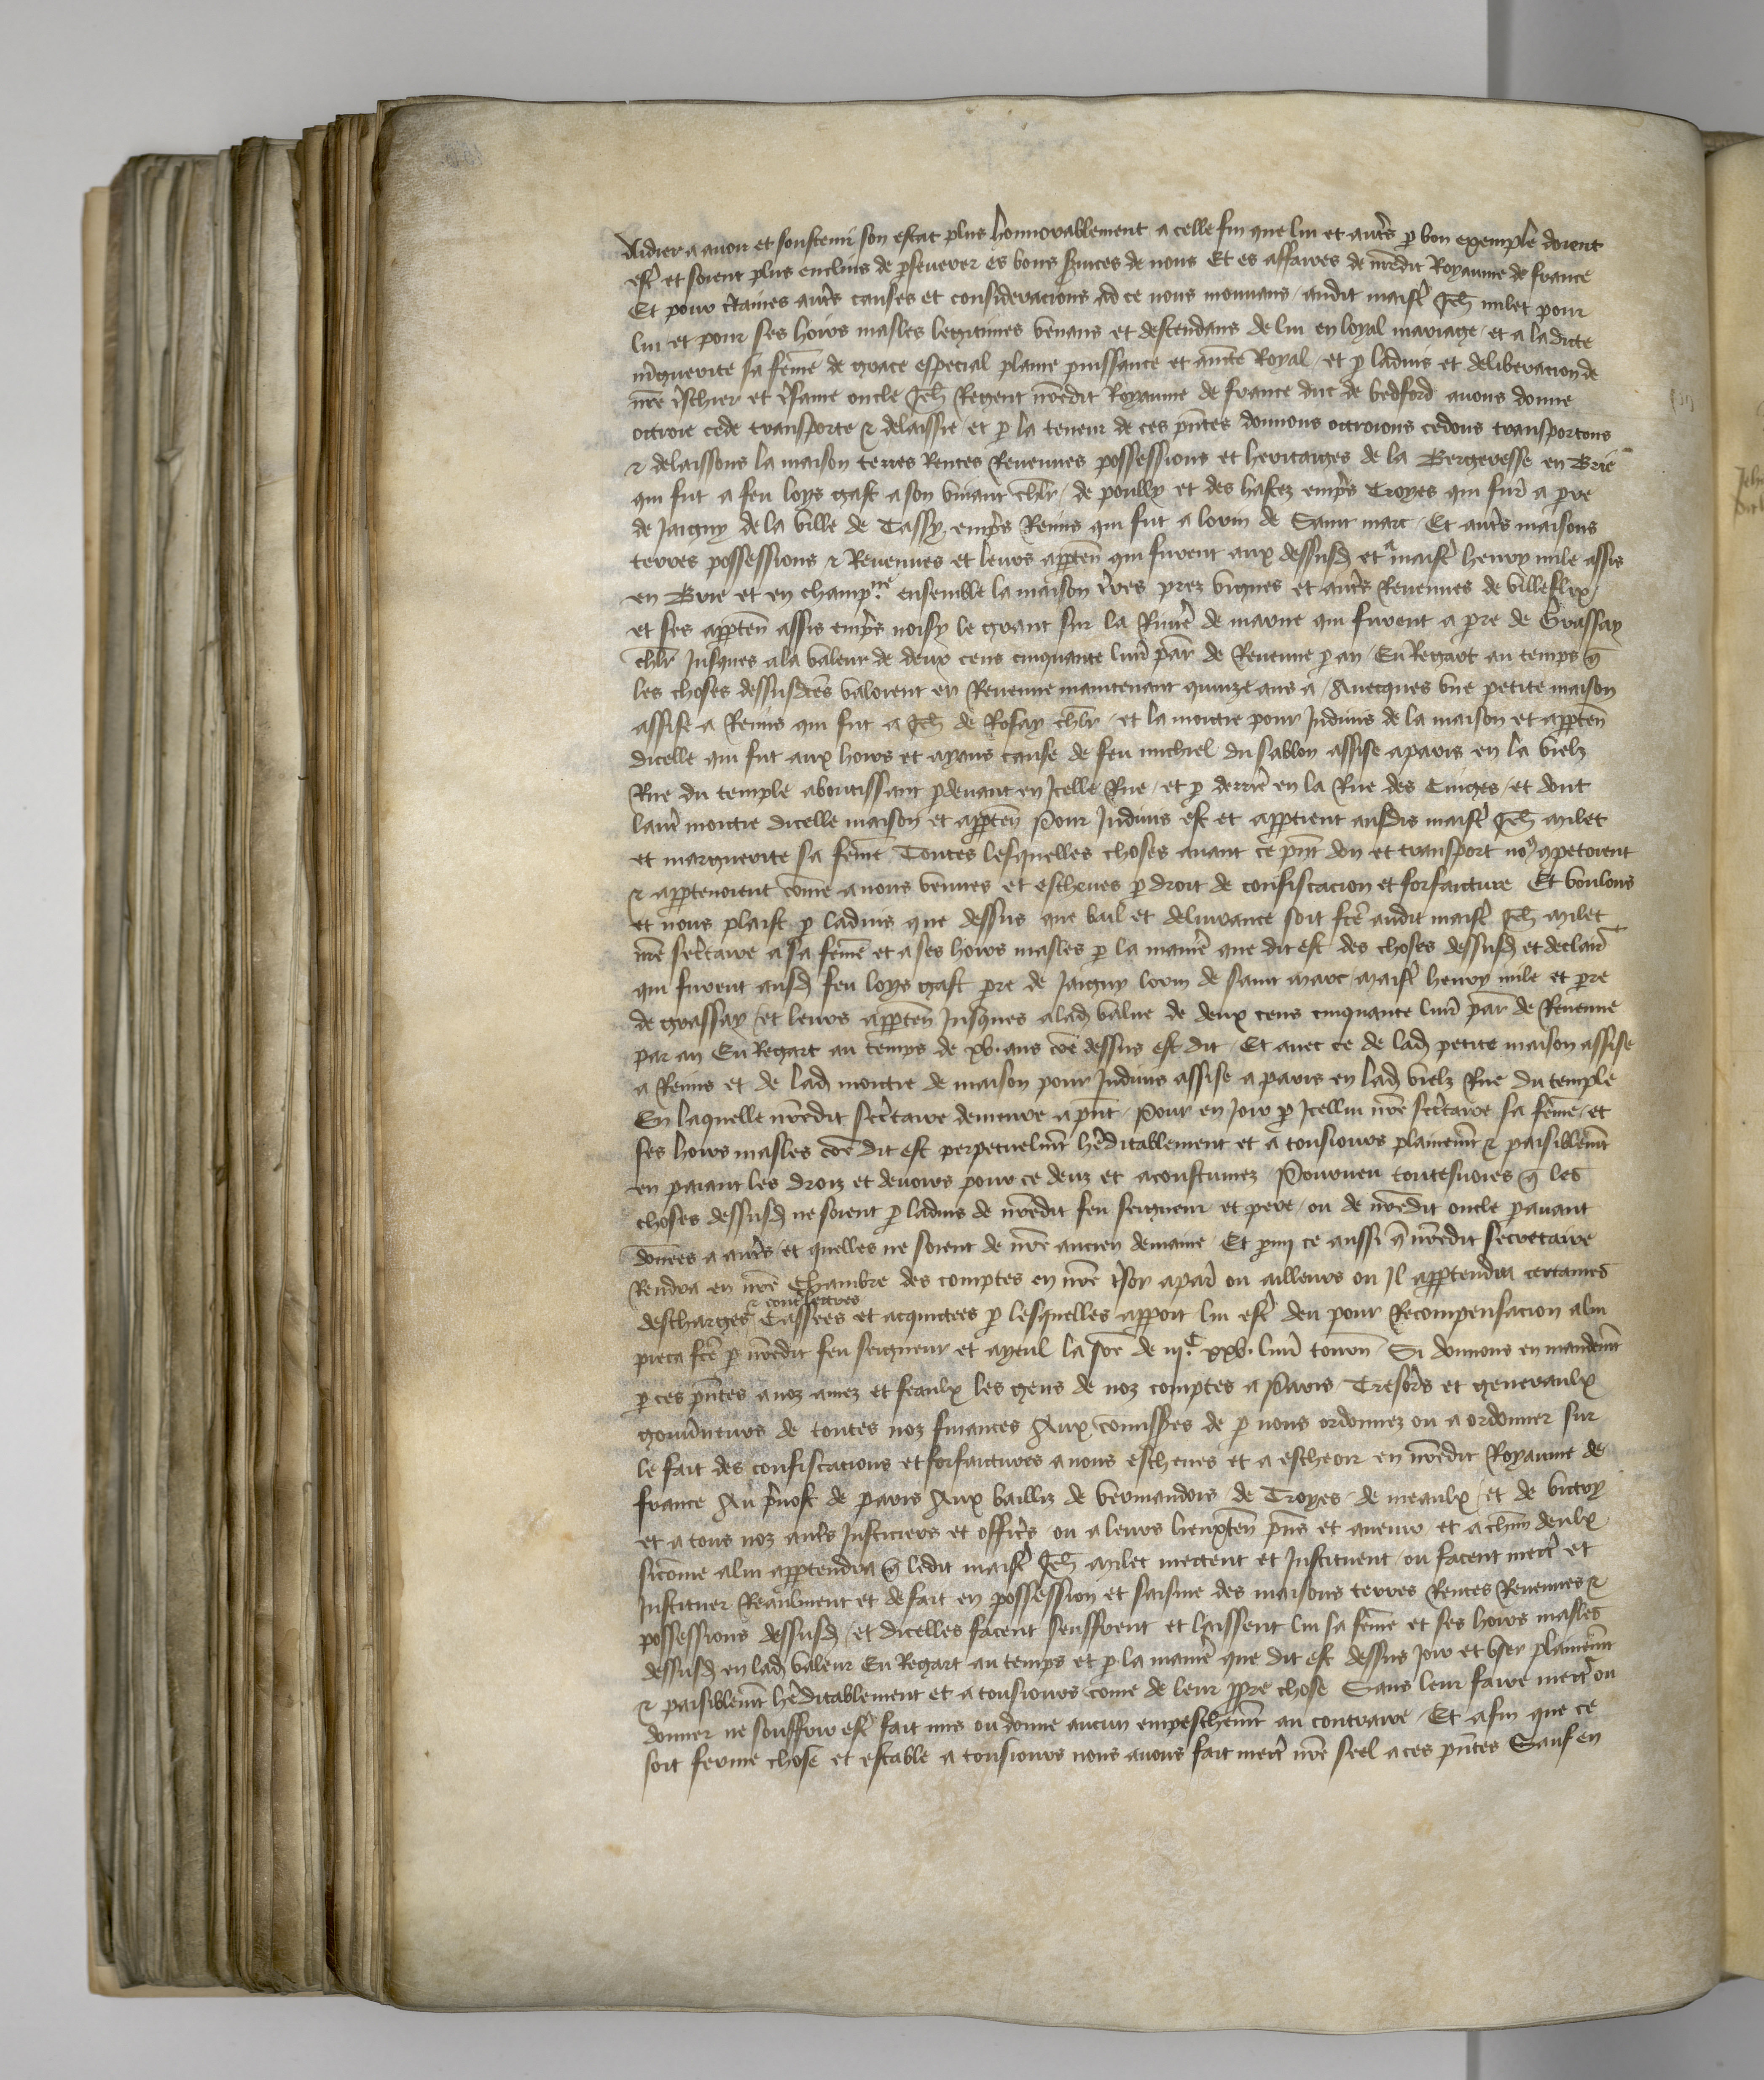 Aidier a avoir et soustenir son estat plus honnorablement a celle fin que lui et aut̃s ꝑ bon exemple doient
est̃ et soient plus enclins de ꝑseuerer es bons ẜuices de nous Et es affaires de nr̃edit Royaume de france
Et pour c̃taines aut̃s causes et consideracions ad ce nous mouuans / audit maist̃ Jeh̃ milet pour
lui et pour ses hoirs masles legitimes venans et descendans de lui en loyal mariage / et a ladicte
m̃guerite sa fem̃e de grace especial plaine puissance et auc̃te Royal / et ꝑ ladius et deliberacion de
nr̃e t̃schier et t̃same oncle Jeh̃ Regent nr̃edit Royaume de france duc de bedford auons donne
octroie cede transporte ⁊ delaissie / et ꝑ la teneur de ces pñtes donnons octroions cedons transportons
⁊ delaissons la maison terres Rentes Reuenues possessions et heritaiges de la Bergeresse en Brie
qui fut a feu loys gast a son viuant chlr̃ / de poully et des hastez empr̃s Troyes qui fur̃ a pre
de Jaigny de la ville de Tassy empr̃s Reims qui fut a lorin de Saint marc / Et aut̃s maisons
terres possessions ⁊ Reuenues et leurs apꝑten̄ qui furent aux dessusd̃ et a maist̃ henry mile assis
en Brie et en champ.ne ensemble la maison t̃res prez vignes et aut̃s Reuenues de villeflix
et ses apꝑten̄ assis empr̃s noisy le grant sur la Riuie̾ de marne qui furent a pre de Grassay
chlr̃ Jusques a la valeur de deux cens cinquante liur̃ par̃ de Reuenue ꝑ an / En Regart au temps q̃
les choses dessusdc̃es valoient en Reuenue maintenant quinze ans a / Auecques vne petite maison
assise a Reims qui fut a Jeh̃ de Rosay chlr̃ / et la moitie pour Jndiuis de la maison et apꝑten̄
dicelle qui fut aux hoirs et ayans cause de feu michiel du sablon assise a paris en la vielz
Rue du temple aboutissant ꝑdeuant en Jcelle Rue / et ꝑ derrie̾ en la Rue des Singes / et dont
laut̃ moitie dicelle maison et apꝑten̄ Pour Jndiuis est et apꝑtient ausdis maist̃ Jeh̃ milet
et marguerite sa fem̃e Toutes lesquelles choses auant ce pñt don et transport noꝰ ꝯpetoient
⁊ apꝑtenoient com̃e a nous venues et escheues ꝑ droit de confiscacion et forfaicture Et voulons
et nous plaist ꝑ ladius que dessus que bail et deliurance soit fc̃e audit maist̃ Jeh̃ milet
nr̃e sec̃taire a sa fem̃e et a ses hoirs masles ꝑ la manie̾ que dit est des choses dessusd̃ et declair̃
qui furent ausd̃ feu loys gast pre de Jaigny lorin de saint marc maist̃ henry mile et pre
de grassay / et leurs apꝑten̄ Jusques a lad̃ value de deux cens cinquante liur̃ par̃ de Reuenue
par an En Regart au temps de xv. ans coe̾ dessus est dit / Et auec ce de lad̃ petite maison assise
a Reims et de lad̃ moitie de maison pour Jndiuis assise a paris en lad̃ vielz Rue du temple
En laquelle nr̃edit sec̃taire demeure a pñt / Pour en Joir ꝑ Jcellui nr̃e sec̃taire sa fem̃e / et
ses hoirs masles coe̾ dit est perpetuelmt̃ he̾ditablement et a tousiours plainemt̃ ⁊ paisiblemt̃
en paiant les droiz et deuoirs pour ce deuz et acoustumez / Pourueu toutesuoies q̃ les
choses dessusd̃ ne soient ꝑ ladius de nr̃edit feu seigneur et pere / ou de nr̃edit oncle ꝑauant
donne̾es a aut̃s / et quelles ne soient de nr̃e ancien demaine / Et ꝑmy ce aussi q̃ nr̃edit secretaire
Rendra en nr̃e Chambre des comptes en nr̃e t̃sor a par̃ ou ailleurs ou Jl apꝑtendra certaines
descharges ⁊ cont̾lectres Cassees et acquictees ꝑ lesquelles apport lui est̃ deu pour Recompensacion a lui
pieca fc̃e ꝑ nr̃edit feu seigneur et ayeul la soe̾ de iij.C xxv. liur̃ tourn̄ / Si donnons en mandemt̃
ꝑ ces pñtes a noz amez et feaulx les gens de noz comptes a Paris Tresor̃s et generaulx
gouu̾neurs de toutes noz finances Aux com̃isse̾s de ꝑ nous ordonnez ou a ordonner sur
le fait des confiscacions et forfaictures a nous escheues et a escheoir en nr̃edit Royaume de
france Au pr̃uost de paris Aux bailliz de vermandois de Troyes / de meaulx / et de victry
et a tous noz aut̃s Justiciers et offic̃s ou a leurs lieuxten̄ pñs et auenir / et a chũn deulx
sicom̃e a lui apꝑtendra q̃ ledit maist̃ Jeh̃ milet mettent et Jnstituent / ou facent mett̃ et
Jnstituer Reaulment et de fait en possession et saisine des maisons terres Rentes Reuenues ⁊
possessions dessusd̃ / et dicelles facent seuffrent et laissent lui sa fem̃e et ses hoirs masles
dessusd̃ en lad̃ valeur En Regart au temps et ꝑ la manie̾ que dit est dessus Joir et vser plainemt̃
⁊ paisiblemt̃ he̾ditablement et a tousiours com̃e de leur ꝓpre chose Sans leur faire mett̃ ou
donner ne souffrir est̃ fait mis ou donne aucun empeschemt̃ au contraire / Et afin que ce
soit ferme chose et estable a tousiours nous auons fait mett̃ nr̃e seel a ces pñtes Sauf en